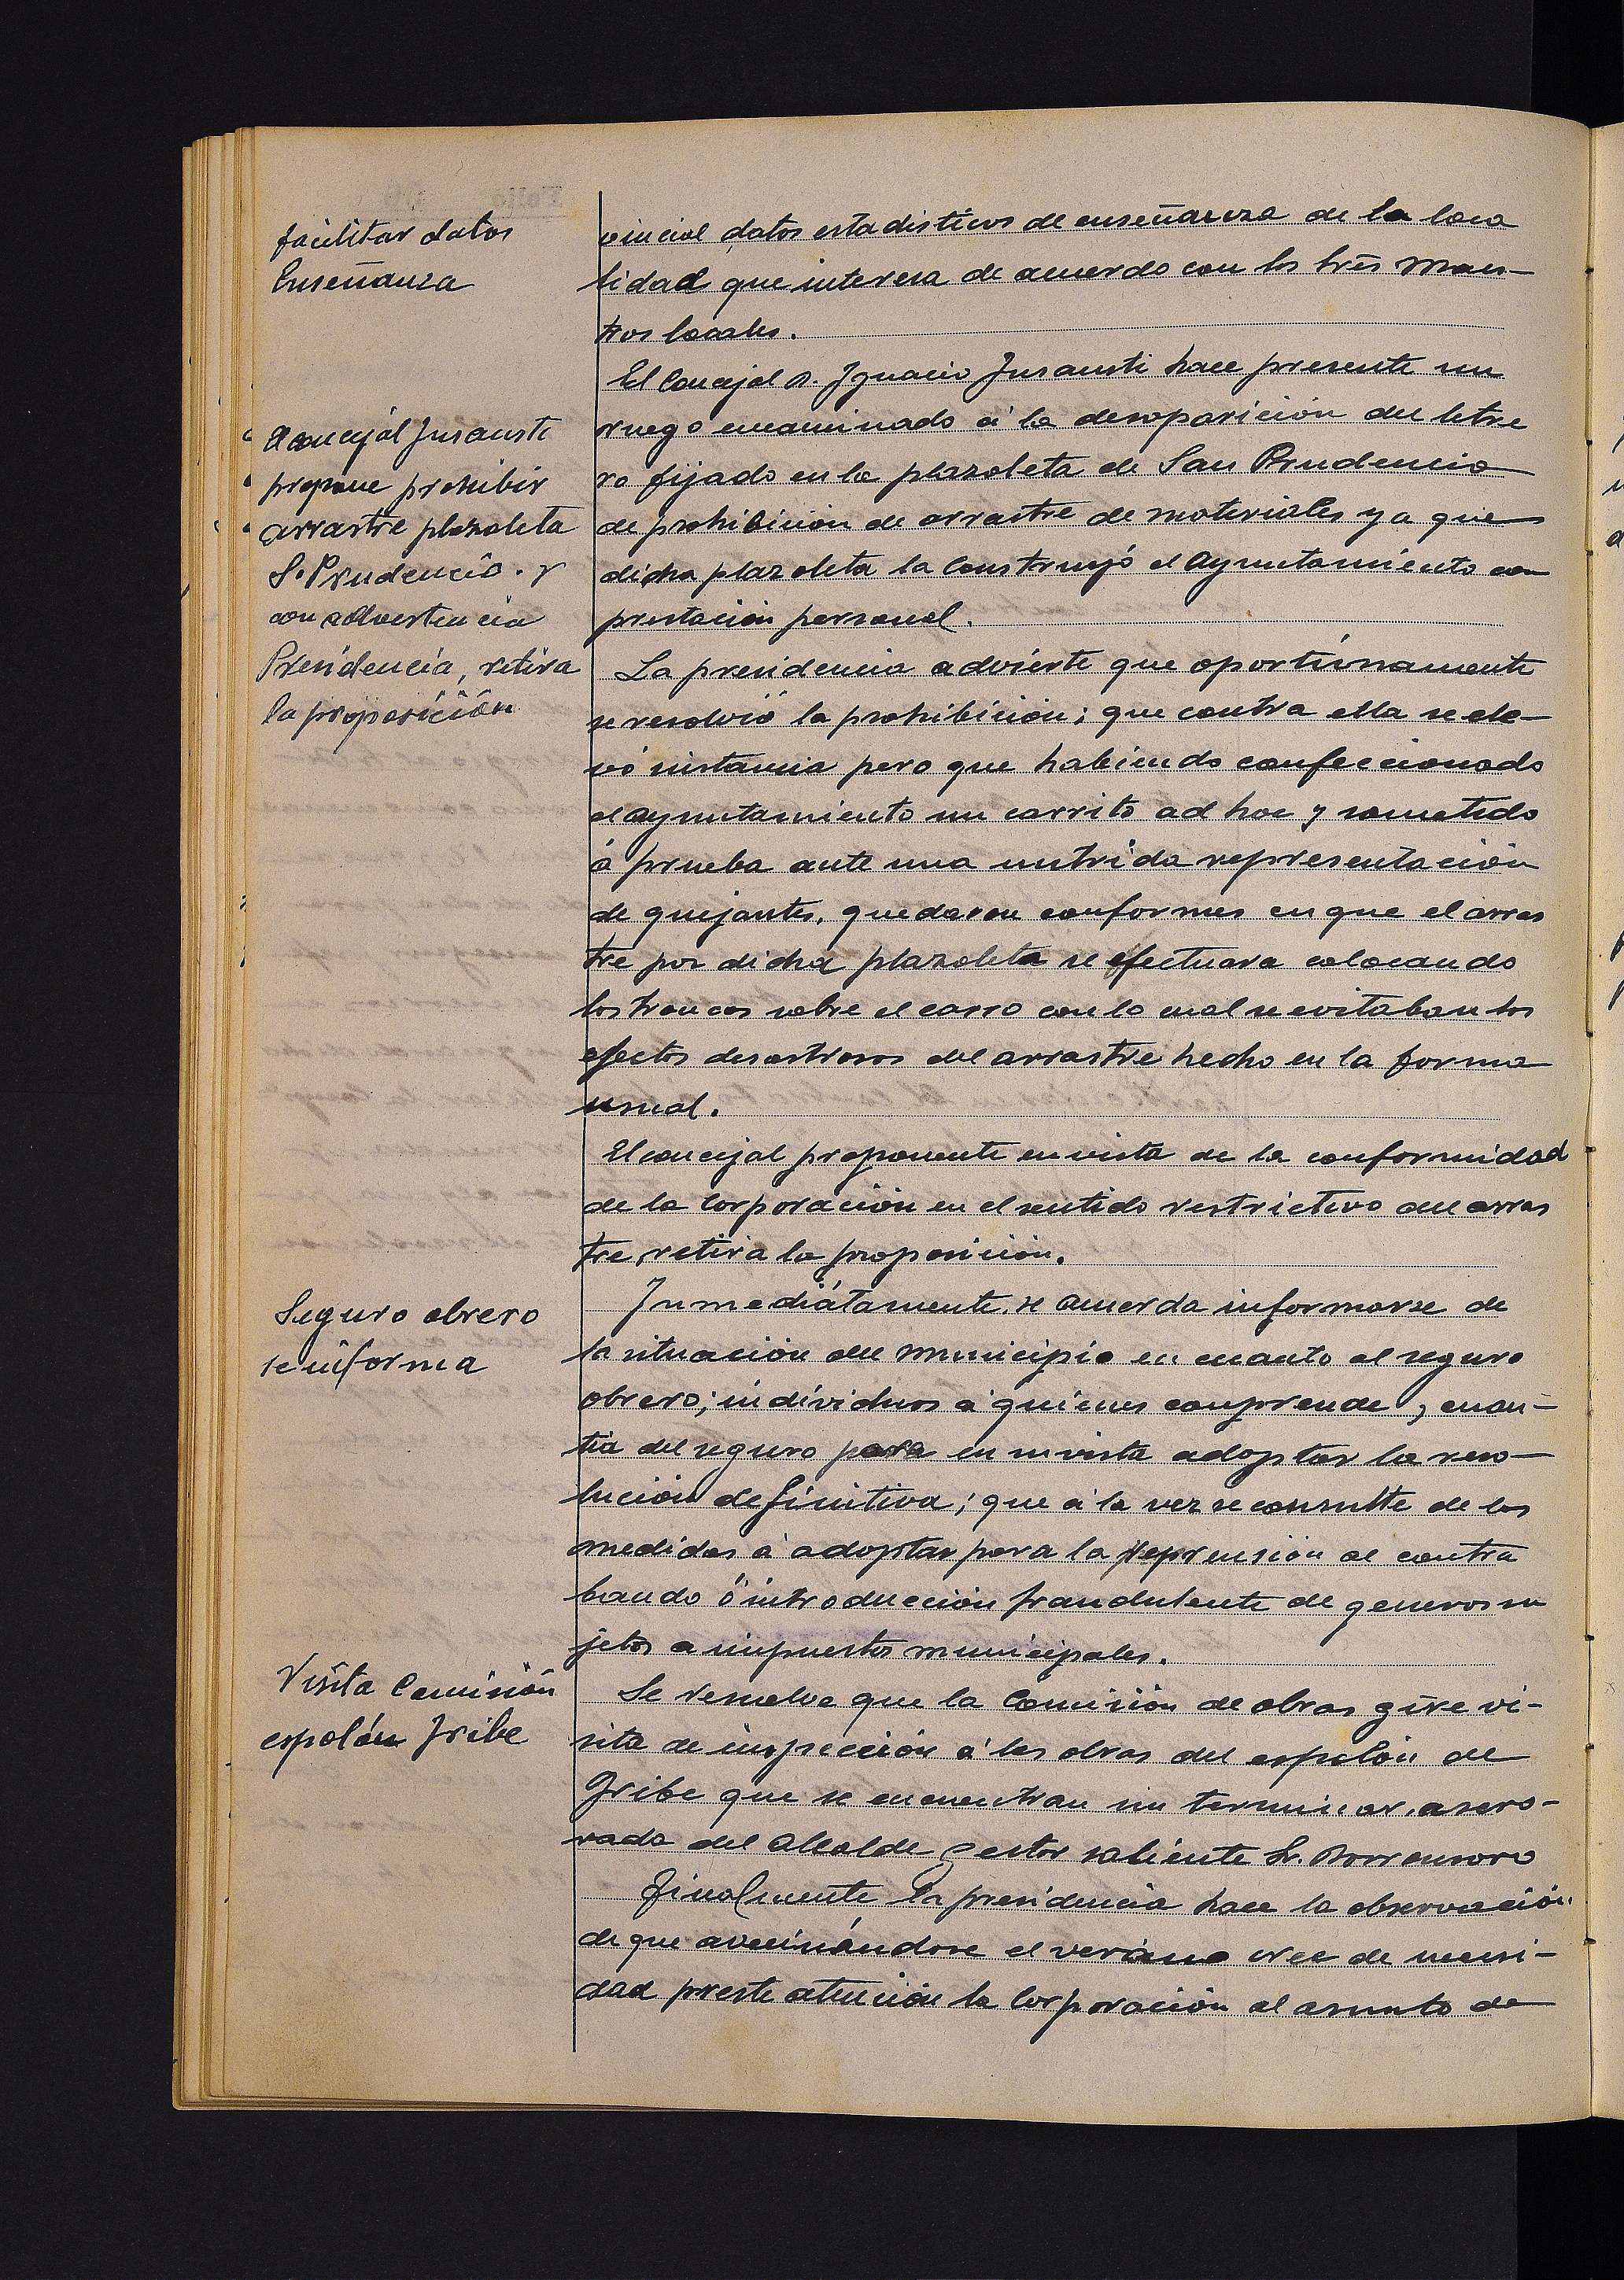 facilitar datos
Enseñanza
vincial datos estadisticos de enseñanza de la loca
lidad que interesa de acuerdo con los tres maes-
tros locales.
El concejal Jnsausti
propone prohibir
arrastre plazoleta
S. Prudencio. y
con advertencia
Presidencia, retira
la proposición
El Concejal D. Jgnacio Jnsausti hace presente un
ruego encaminado á la desaparición del letre
ro fijado en la plazoleta de San Prudencio
de prohibición de arrastre de materiales ya que
dicha plazoleta la construyó el Ayuntamiento con
prestación personal.
La presidencia advierte que oportúnamente
se resolvió la prohibición; que contra ella se ele-
vó instancia pero que habiendo confeccionado
el ayuntamiento un carrito ad hoc y sometido
á prueba ante una nutrida representación
de quejantes, quedaron conformes en que el arras
tre por dicha plazoleta se efectuara colocando
los troncos sobre el carro con lo cual se evitaban los
efectos desastrosos del arrastre hecho en la forma
usual.
El concejal proponente en vista de la conformidad
de la Corporación en el sentido restrictivo del arras
tre, retira la proposición.
Seguro obrero
se informa
Jnmediátamente se acuerda informarse de
la situación del municipio en cuanto al seguro
obrero; individuos á quienes comprende, cuan-
tia del seguro para en su vista adoptar la reso-
lución definitiva; que á la vez se consulte de las
medidas á adoptar para la represión de contra
bando ó introducción fraudulenta de generos su
jetos a impuestos municipales.
Visita Comisión
espolón Jribe
Se resuelve que la Comisión de obras gire vi-
sita de inspección á las obras del espolón de
Jribe que se encuentran sin terminar, aseso-
rada del Alcalde gestor saliente Sr.
Finalmente la presidencia hace la observación
de que avecinándose el verano cree de necesi-
dad preste atención la Corporación al asunto de